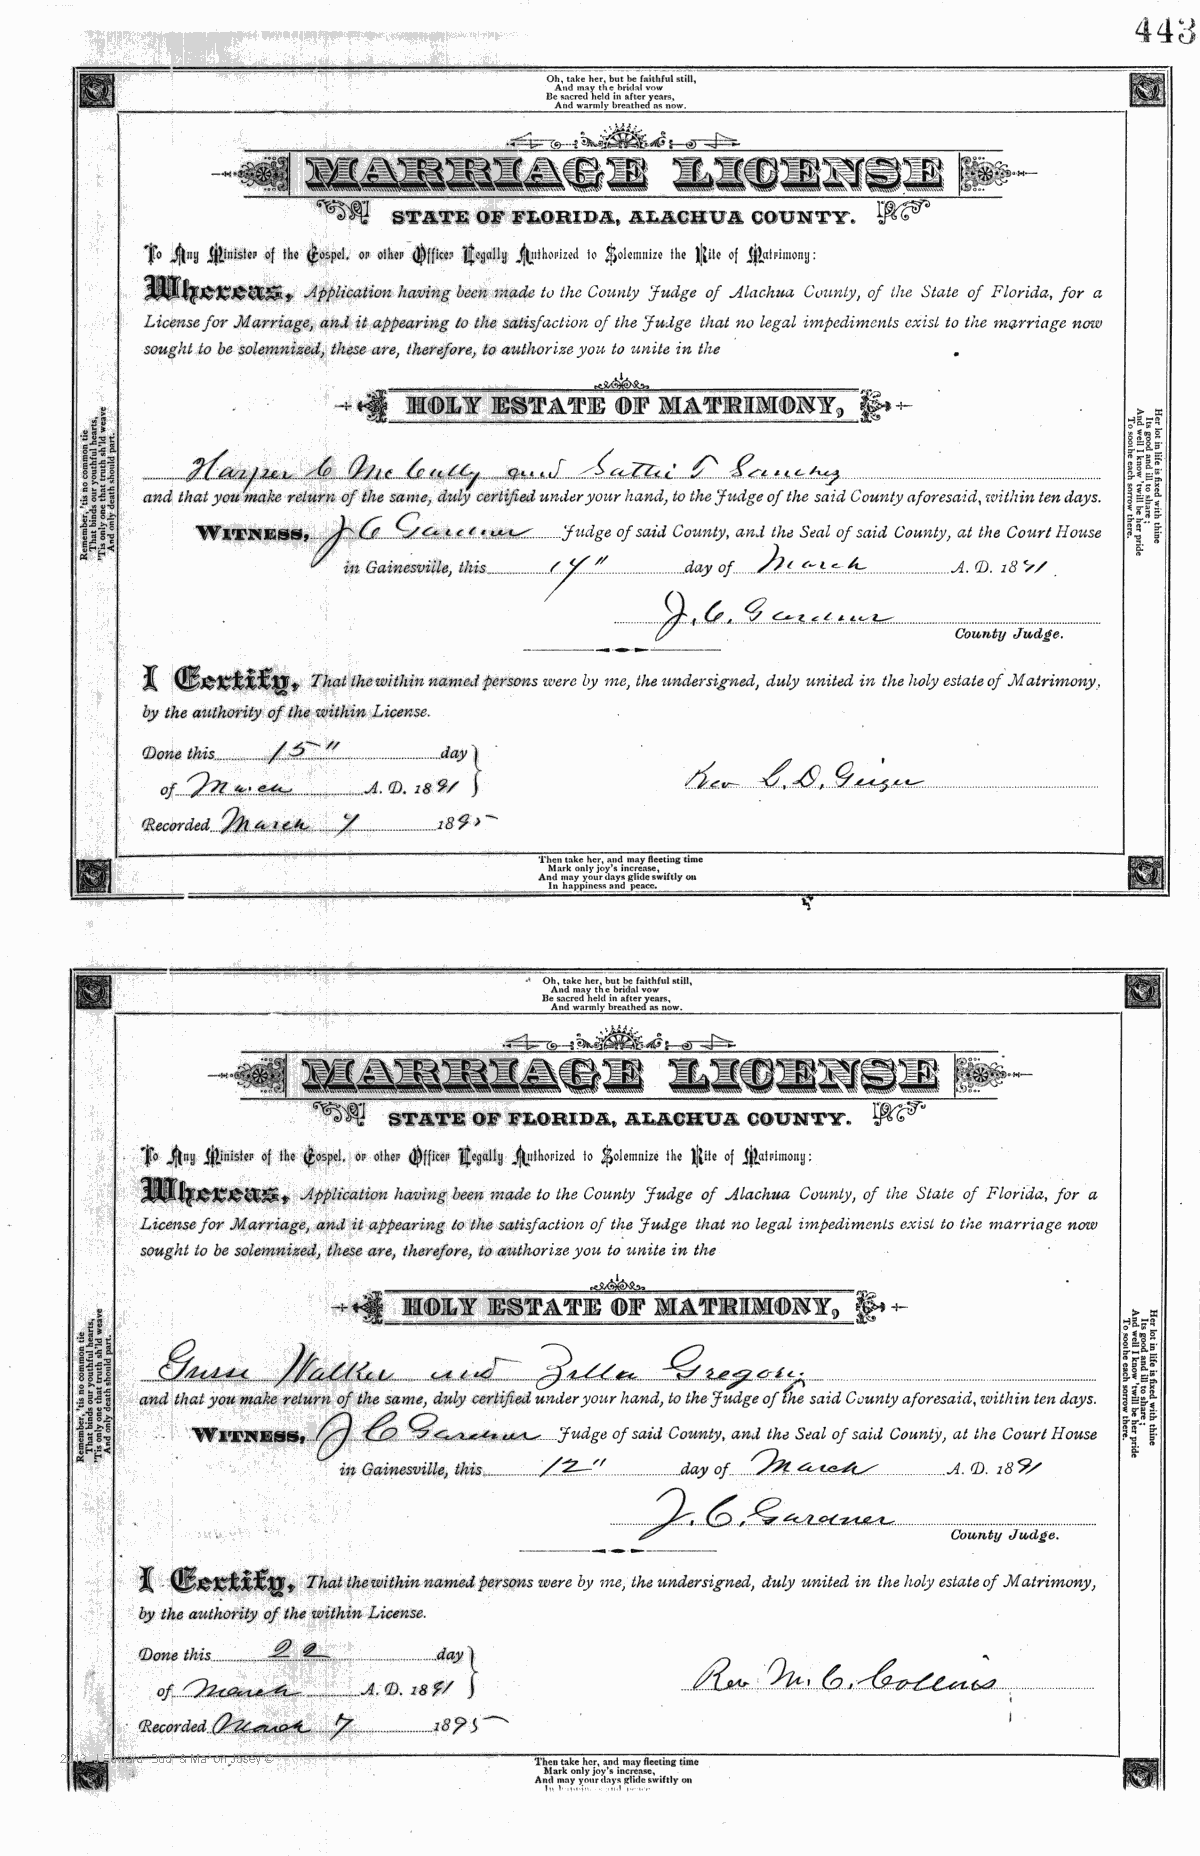 443
Oh, take her, but be faithful still,
And may the bridal vow
Be sacred held in after years,
And warmly breathed as now.
MARRIAGE LICENSE
STATE OF FLORIDA, ALACHUA COUNTY.
To Any Minister of the Gospel, or other Officer Legally Authorized to Solemnize the Rite of Matrimony:
Whereas, Application having been made to the County Judge of Alachua County, of the State of Florida, for a
License for Marriage, and it appearing to the satisfaction of the Judge that no legal impediments exist to the marriage now
sought to be solemnized, these are, therefore, to authorize you to unite in the
HOLY ESTATE OF MATRIMONY,
Harper C McCully and Sattie T Sanchez
and that you make return of the same, duly certified under your hand, to the Judge of the said County aforesaid, within ten days.
WITNESS, J C Gardner Judge of said County, and the Seal of said County, at the Court House
in Gainesville, this 14" day of March A. D. 1891.
J. C. Gardner
County Judge.
I Certify, That the within named persons were by me, the undersigned, duly united in the holy estate of Matrimony,
by the authority of the within License.
Done this 15" day
of March A. D. 1891
Rev C. D. Geiger
Recorded March 7 1895
Remember, 'tis no common tie
That binds our youthful hearts,
'Tis only one that truth sh'ld weave
And only death should part.
Her lot in life is fixed with thine
Its good and ill to share;
And well I know 'twill be her pride
To soothe each sorrow there.
Then take her, and may fleeting time
Mark only joy's increase,
And may your days glide swiftly on
In happiness and peace.
Oh, take her, but be faithful still,
And may the bridal vow
Be sacred held in after years,
And warmly breathed as now.
MARRIAGE LICENSE
STATE OF FLORIDA, ALACHUA COUNTY.
To Any Minister of the Gospel, or other Officer Legally Authorized to Solemnize the Rite of Matrimony:
Whereas, Application having been made to the County Judge of Alachua County, of the State of Florida, for a
License for Marriage, and it appearing to the satisfaction of the Judge that no legal impediments exist to the marriage now
sought to be solemnized, these are, therefore, to authorize you to unite in the
HOLY ESTATE OF MATRIMONY,
Walker and Zella Gregory
and that you make return of the same, duly certified under your hand, to the Judge of the said County aforesaid, within ten days.
WITNESS, J C Gardner Judge of said County, and the Seal of said County, at the Court House
in Gainesville, this 12" day of March A. D. 1891
J. C. Gardner
County Judge.
I Certify, That the within named persons were by me, the undersigned, duly united in the holy estate of Matrimony,
by the authority of the within License.
Done this 22 day
of March A. D. 1891
Rev M. C. Collins
Recorded March 7 1895
Remember, 'tis no common tie
That binds our youthful hearts,
'Tis only one that truth sh'ld weave
And only death should part.
Her lot in life is fixed with thine
Its good and ill to share;
And well I know 'twill be her pride
To soothe each sorrow there.
Then take her, and may fleeting time
Mark only joy's increase,
And may your days glide swiftly on
In happiness and peace